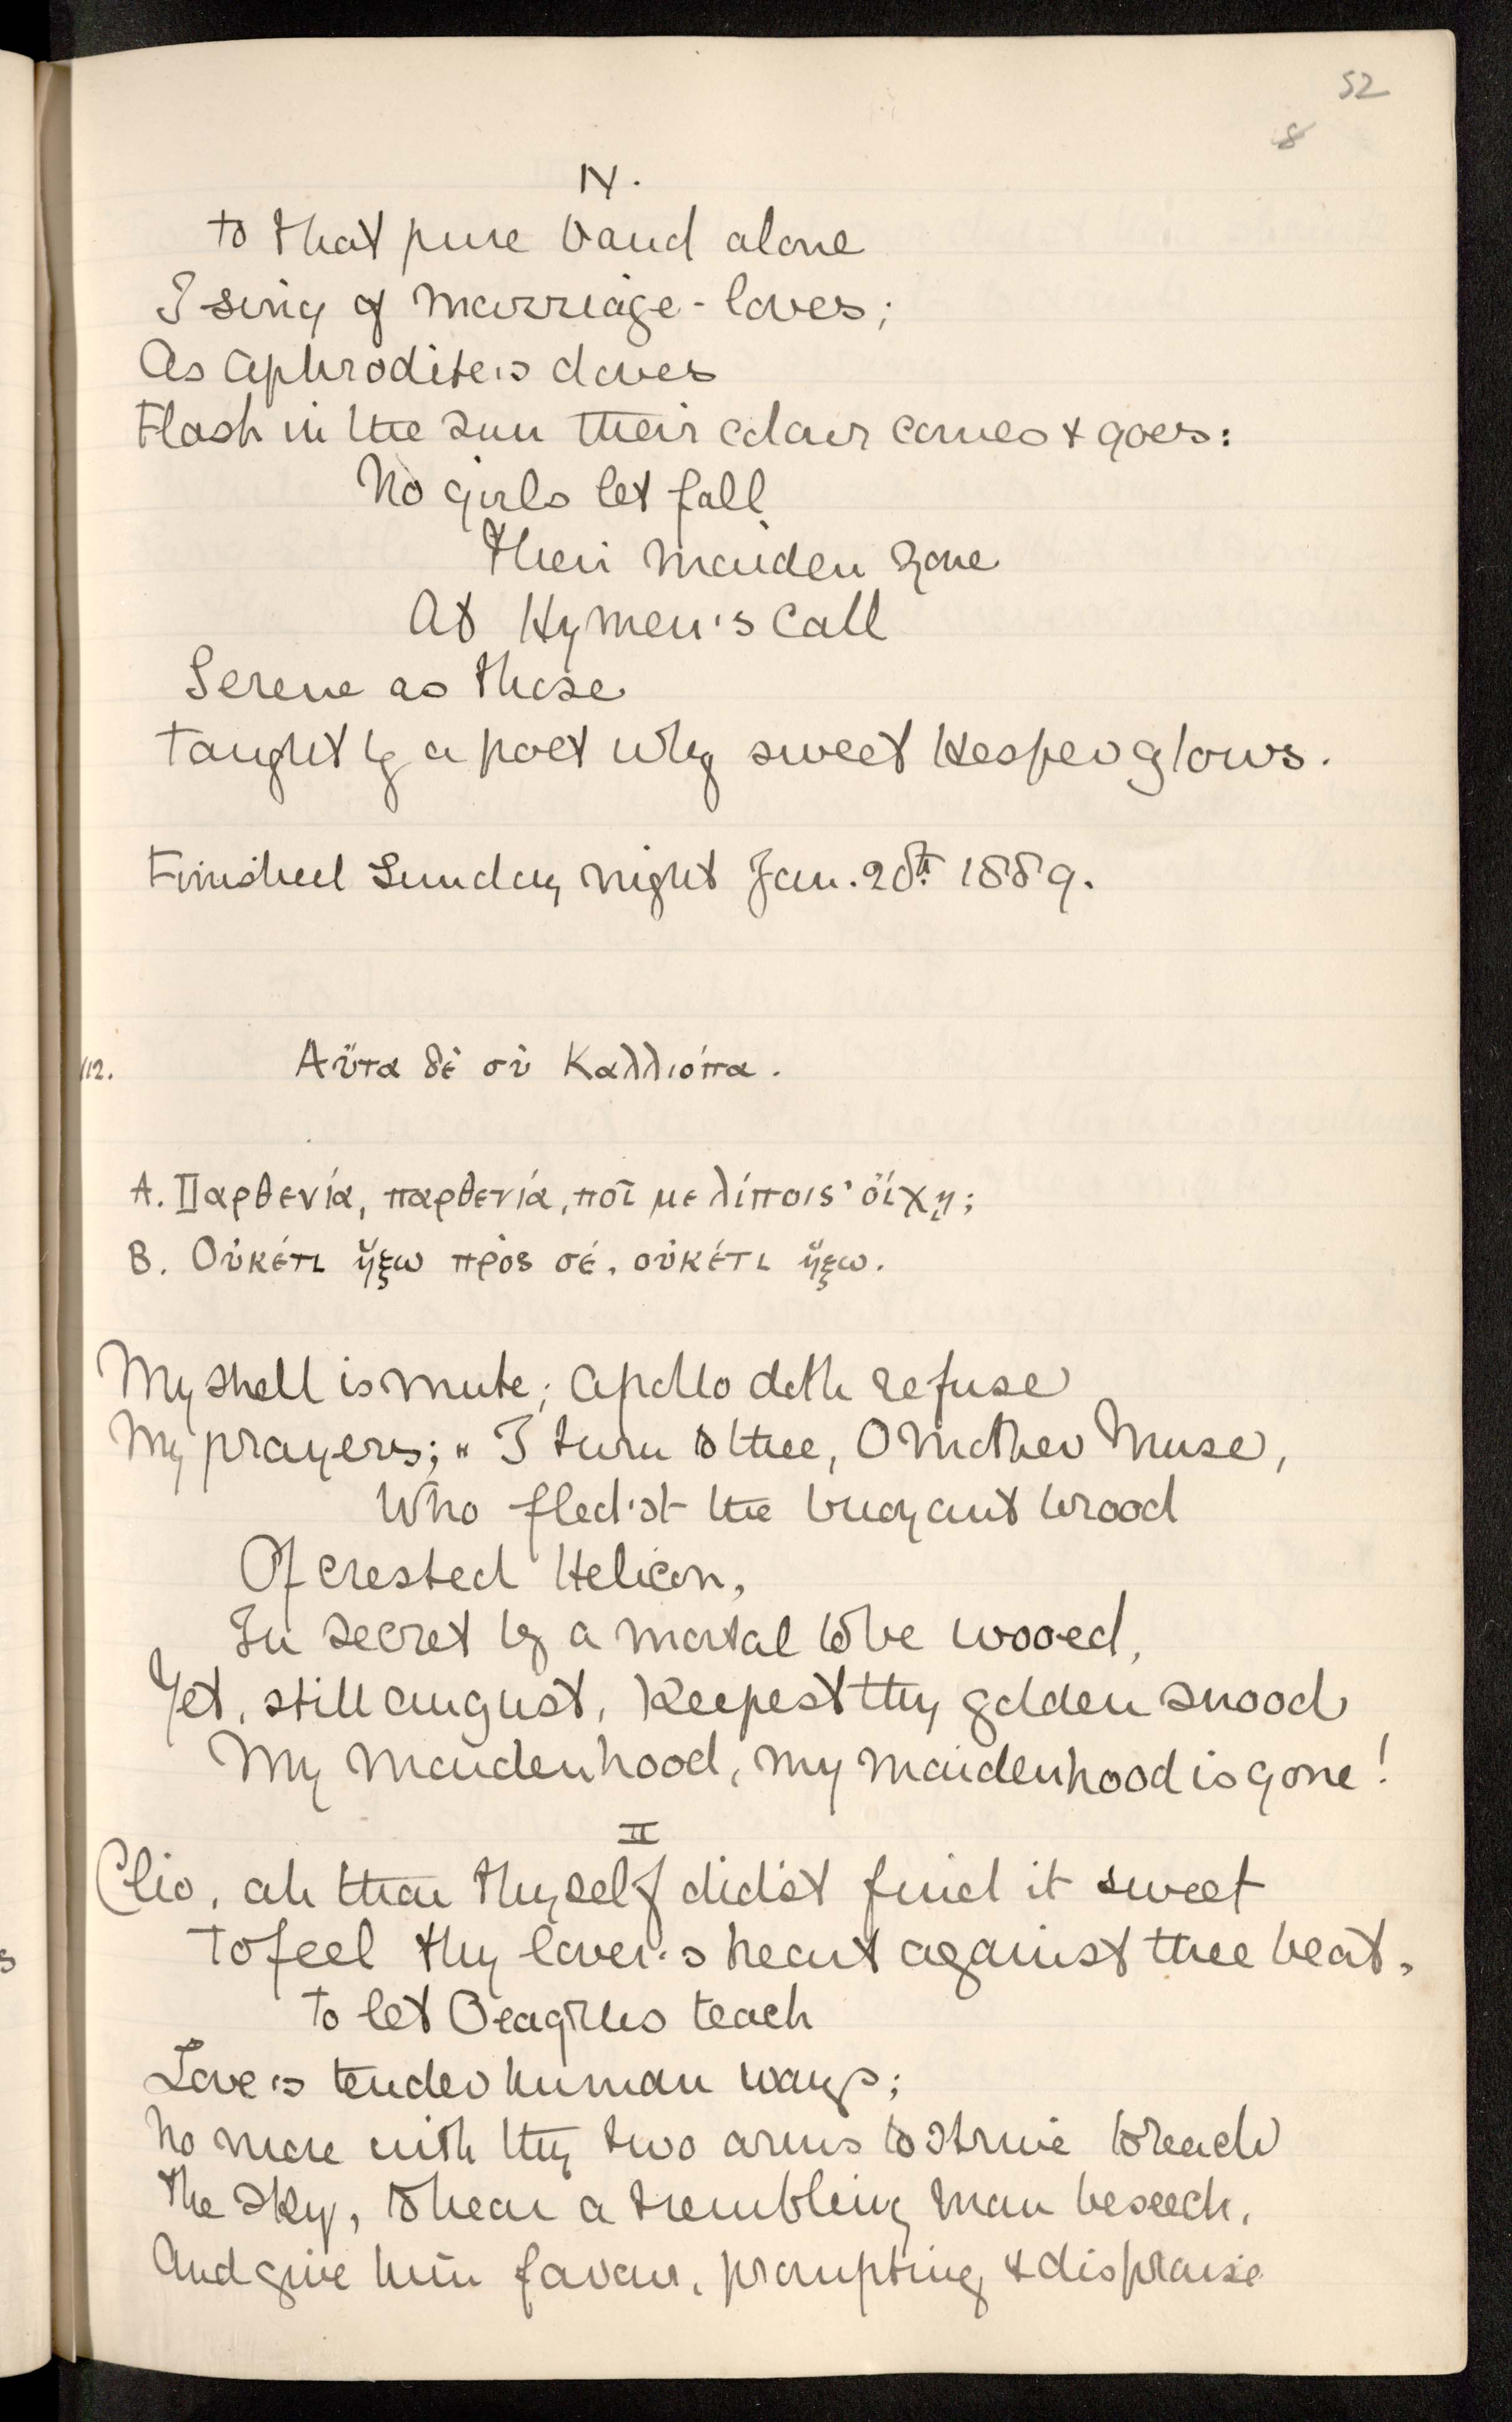 52
8
IV.
To that pure band alone
I sing of marriage-loves;
As Aphrodite's doves
Flash in the sun their colour comes & goes:
No girls let fall
Their maiden zone
At Hymen's call
Serene as those
Taught by a poet why sweet Hesper glows.
Finished Sunday night Jan. 20th 1889.
112. Αὔτα δὲ σὺ Καλλιόπα.
A. Παρθενία, παρθενία, ποῖ με λίποις' οἴχῃ;
B. Οὐκέτι ἤξω πρὸς σέ, οὐκέτι ἤξω.
My shell is mute; Apollo doth refuse
My prayers; " I turn to thee, O mother Muse,
Who fled'st the buoyant brood
Of crested Helicon,
In secret by a mortal to be wooed,
Yet, still august, keepest thy golden snood
My maidenhood, my maidenhood is gone!
II
Clio, ah thou thyself did'st find it sweet
To feel thy lover's heart against thee beat,
To let Oeagrus teach
Love's tender human ways;
No more with thy two arms to strive to reach
The sky, to hear a trembling man beseech,
And give him favour, prompting & dispraise
s